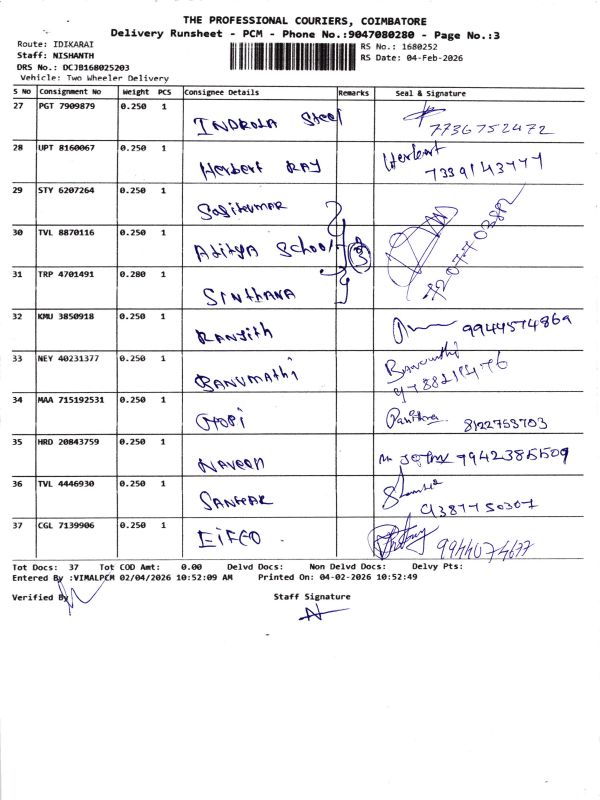 THE PROFESSIONAL COURIERS, COIMBATORE
Delivery Runsheet - PCM - Phone No.:9047080280 - Page No.:3
Route: IDIKARAI
RS No.: 1680252
Staff: NISHANTH
RS Date: 04-Feb-2026
DRS No.: DCJB168025203
Vehicle: Two Wheeler Delivery
S No Consignment No Weight PCS Consignee Details Remarks Seal & Signature
27 PGT 7909879 0.250 1 INDROLA Steel 7736752472
28 UPT 8160067 0.250 1 Herbert RAY Herbert
29 STY 6207264 0.250 1 Sasikumar
30 TVL 8870116 0.250 1 Aditya School 3
31 TRP 4701491 0.280 1 SINTHANA
32 KMU 3850918 0.250 1 Ranjith 9944574869
33 NEY 40231377 0.250 1 BANUMAthi Banumathi
34 MAA 715192531 0.250 1 Gopi Pavithra 8122753703
35 HRD 20843759 0.250 1 NAVEEN
36 TVL 4446930 0.250 1 SANKAR 9387750307
37 CGL 7139906 0.250 1 EIFCO 9944074677
Tot Docs: 37 Tot COD Amt: 0.00 Delvd Docs: Non Delvd Docs: Delvy Pts:
Entered By :VIMALPCM 02/04/2026 10:52:09 AM Printed On: 04-02-2026 10:52:49
Verified By
Staff Signature